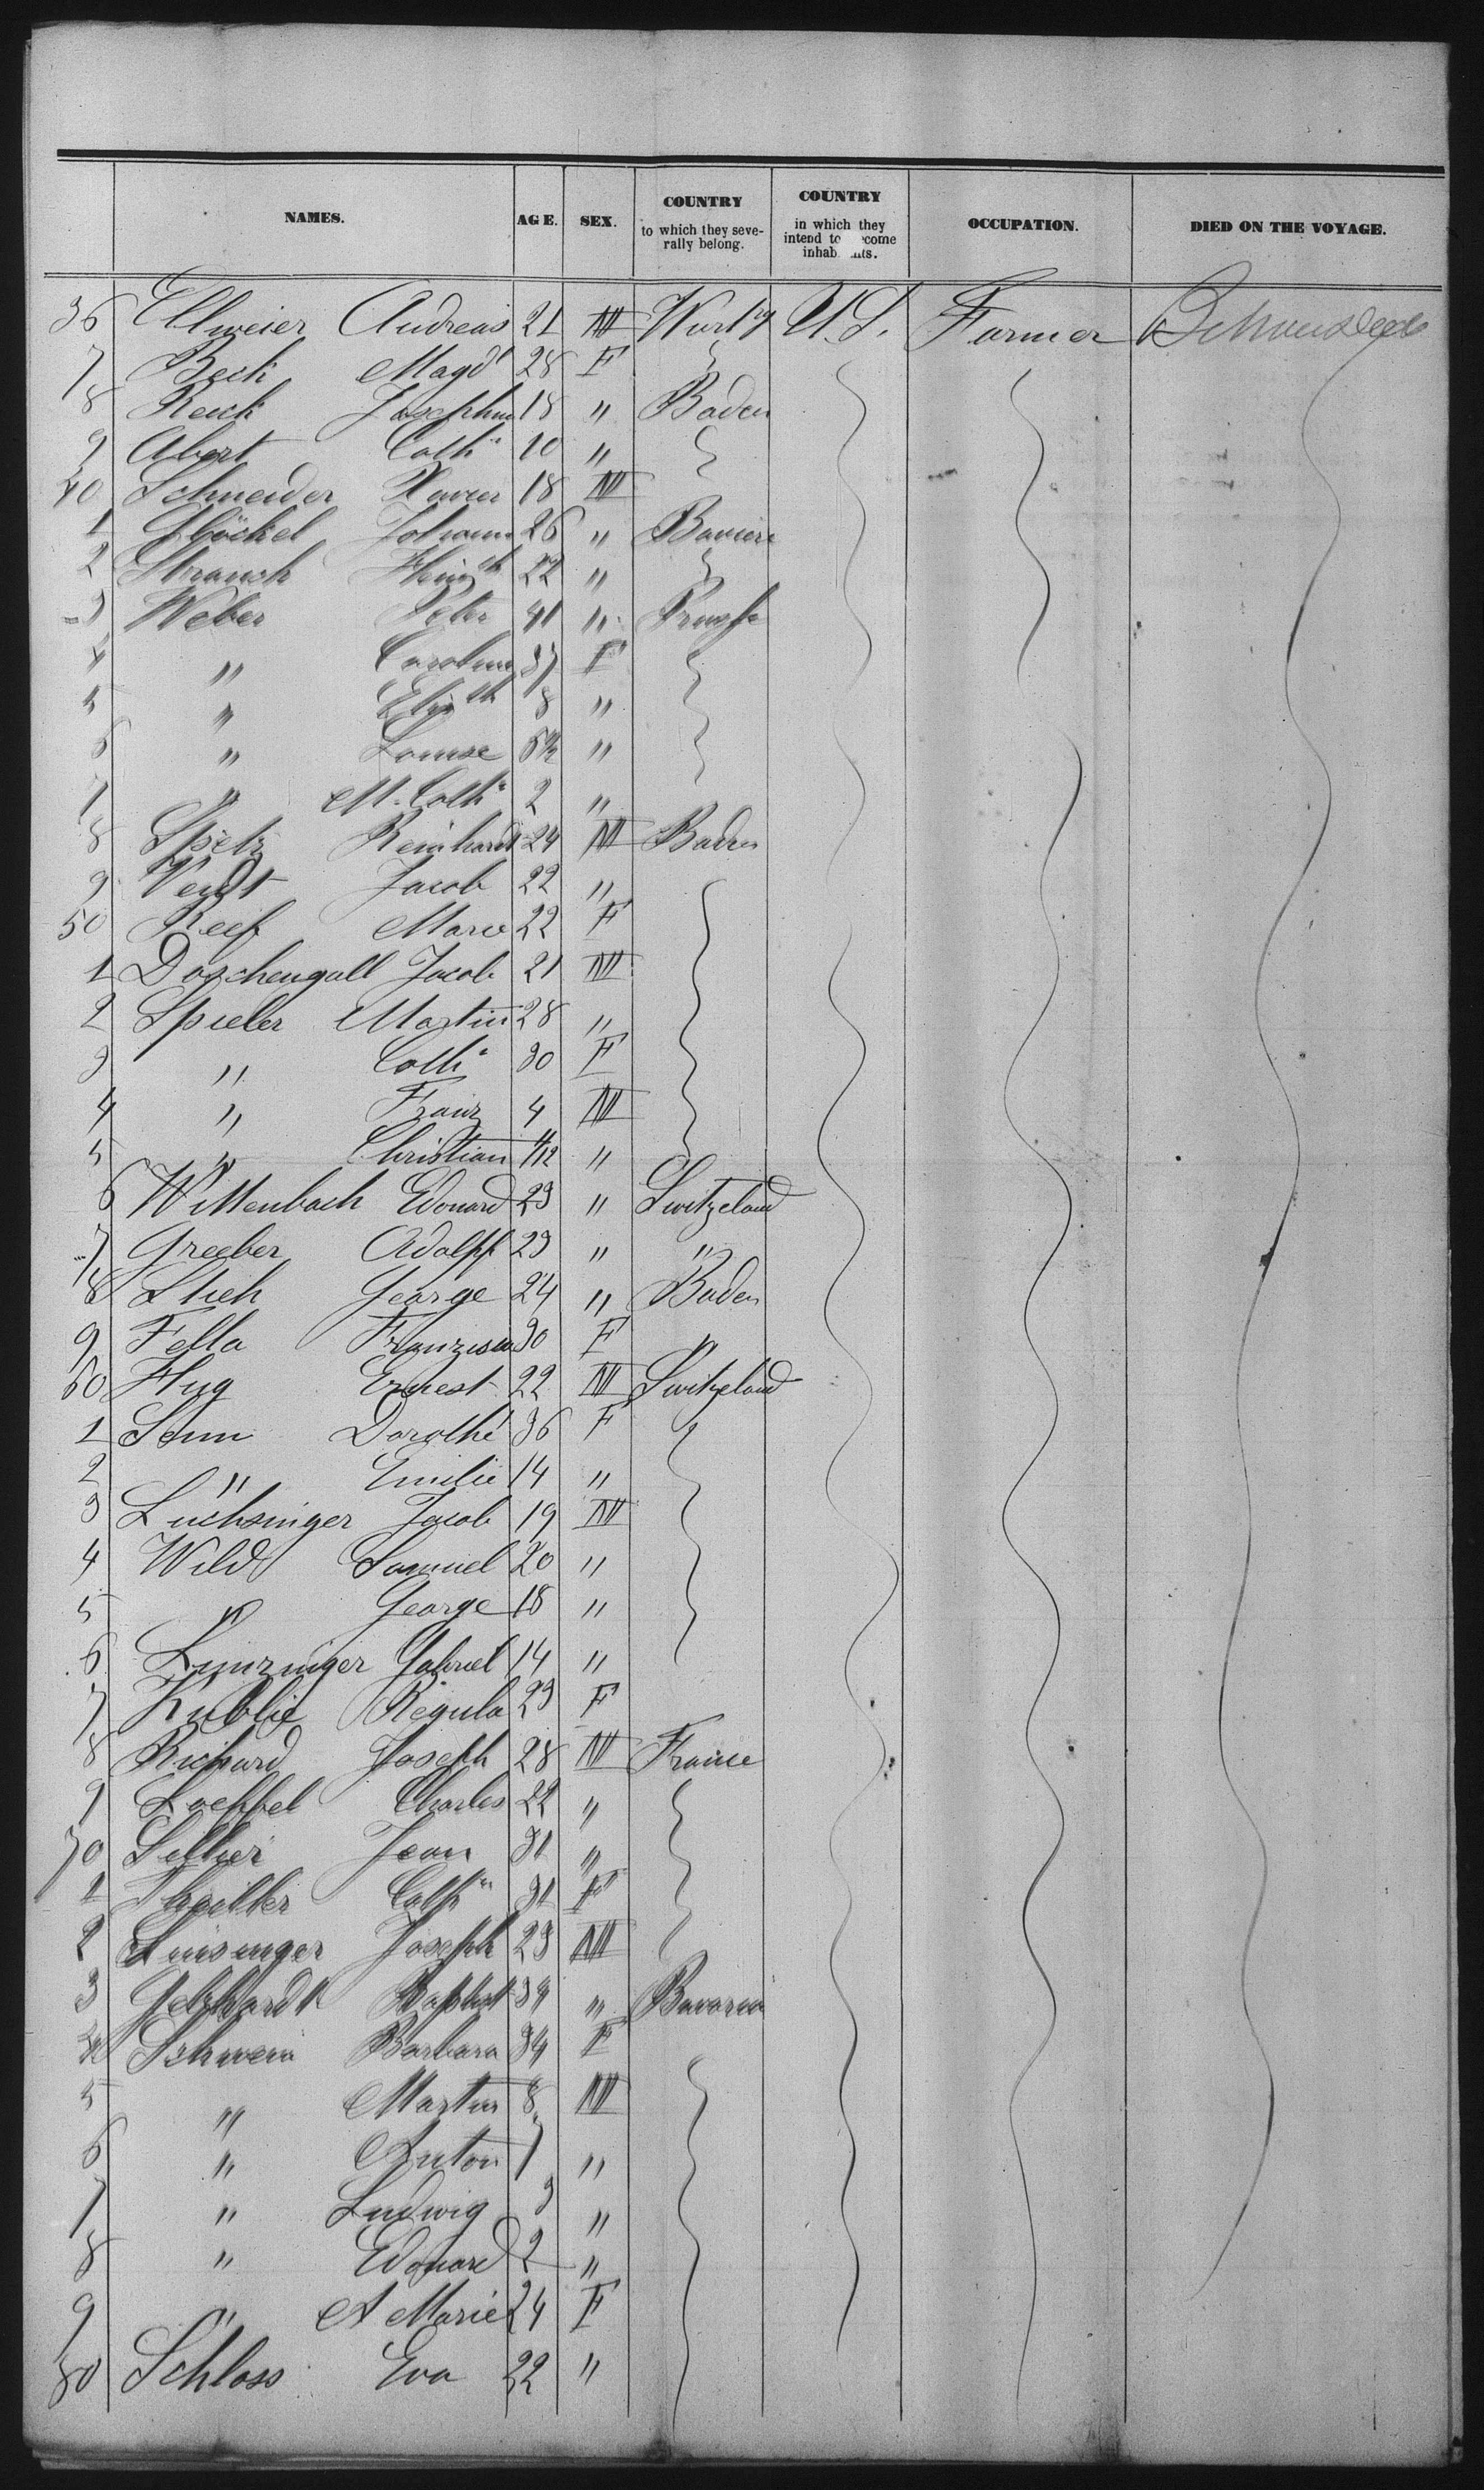 NAMES. AGE. SEX. COUNTRY to which they severally belong. COUNTRY in which they intend to come inhab nts. OCCUPATION. DIED ON THE VOYAGE.
36 Ellweier Andreas 21 M Wurtbg U.S. Farmer
7 Beck Magd 28 F
8 Reick Josephine 18 " Baden
9 Abert Cath 20 "
40 Schneider Xavier 18 M
1 Glöckel Johann 26 " Baviere
2 Strauch Heinrh 22 "
3 Weber Peter 41 " Prusse
4 " Caroline 37 F
5 " Elizth 8 "
6 " Louise "
7 " M. Cathe 2 "
8 Spitz Reinhardt 24 M Baden
9 Jacob 22 "
50 Reef Marie 22 F
1 Doschengall Jacob 21 M
2 Spieler Martin 28 "
3 " Cathe 30 F
4 " Franz 4 M
5 " Christian 11/12 "
6 Wittenbach Edouard 23 " Switzeland
7 Greeber Adolph 23 " "
8 Stich George 24 " Baden
9 Fella Franzisca 30 F "
60 Hug Ernest 22 M Switzeland
1 Senn Dorothé 36 F
2 " Emilie 14 "
3 Luchsinger Jacob 19 M
4 Wild Samuel 20 "
5 " George 18 "
6 Gabriel 14 "
7 Kublie Régula 23 F
8 Richard Joseph 28 M France
9 Charles 22 "
70 Jean 31 "
1 Cathe 31 F
2 Joseph 23 M
3 Gebhardt Baptist 34 " Bavaria
4 Barbara 34 F
5 " Martin 8 M
6 " Anton 7 "
7 " Ludwig 3 "
8 " Edouard 2 "
9 " A Marie 24 F
80 Schloss Eva 22 "